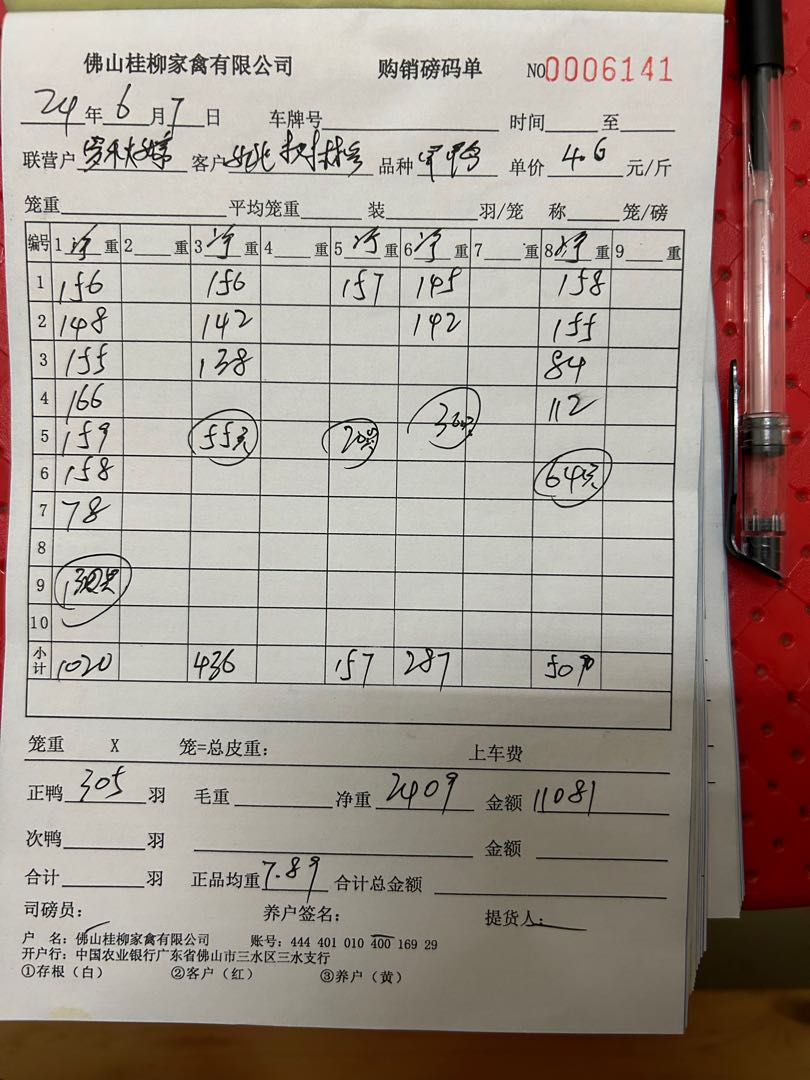 佛山桂柳家禽有限公司 购销磅码单 NO0006141
24年6月7日 车牌号 时间 至
联营户 客户 品种 单价 4.6 元/斤
笼重 平均笼重 装 羽/笼 称 笼/磅
编号 1 净 重 2 重 3 净 重 4 重 5 净 重 6 净 重 7 重 8 净 重 9 重
1 156 156 157 145 158
2 148 142 142 155
3 155 138 84
4 166 112
5 159 55只
6 158 64只
7 78
8
9
10
小计 1020 436 157 287 509
笼重 X 笼=总皮重: 上车费
正鸭 305 羽 毛重 净重 2409 金额 11081
次鸭 羽 金额
合计 羽 正品均重 7.89 合计总金额
司磅员: 养户签名: 提货人:
户 名: 佛山桂柳家禽有限公司 账号: 444 401 010 400 169 29
开户行: 中国农业银行广东省佛山市三水区三水支行
①存根（白） ②客户（红） ③养户（黄）